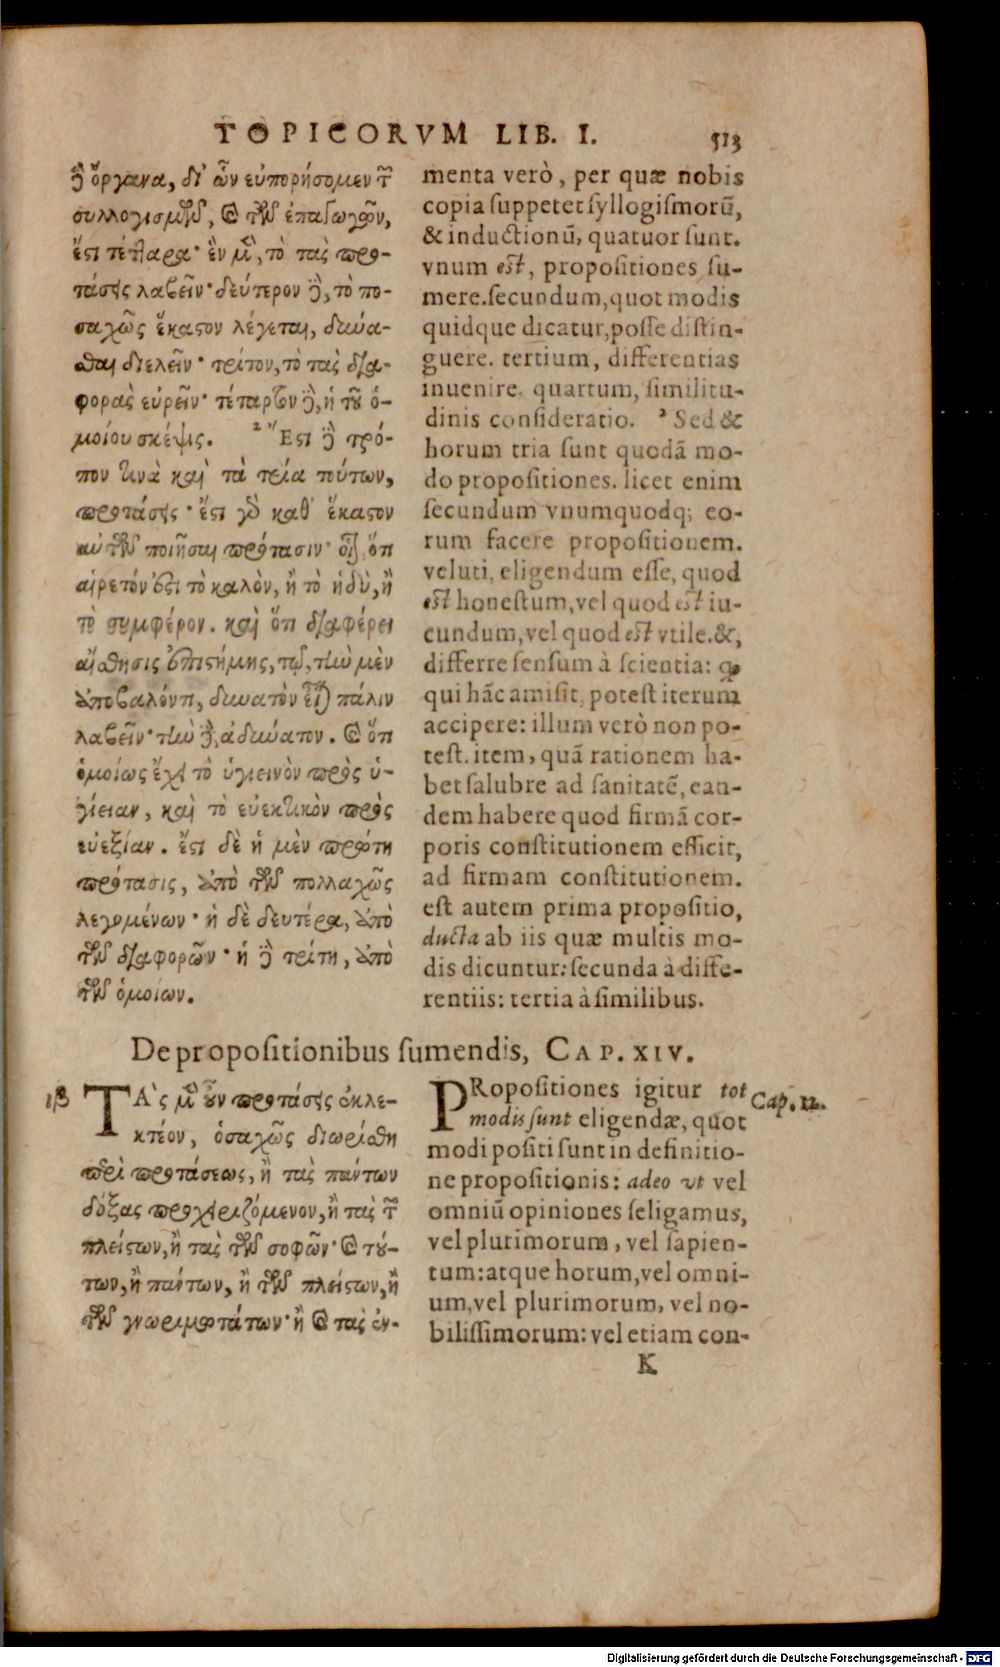 TOPICORVM LIB. I. 513
δὲ ὄργανα, δι' ὧν εὐπορήσομεν τῶν
συλλογισμῶν, καὶ τῶν ἐπαγωγῶν,
ἔστι τέτταρα· ἓν μὲν, τὸ τὰς προ-
τάσεις λαβεῖν· δεύτερον δὲ, τὸ πο-
σαχῶς ἕκαστον λέγεται, δύνα-
σθαι διελεῖν· τρίτον, τὸ τὰς δια-
φορὰς εὑρεῖν· τέταρτον δὲ, ἡ τοῦ ὁ-
μοίου σκέψις. ² Ἔστι δὲ τρό-
πον τινὰ καὶ τὰ τρία τούτων,
προτάσεις· ἔστι γὰρ καθ' ἕκαστον
αὐτῶν ποιῆσαι πρότασιν· οἷον, ὅτι
αἱρετόν ἐστι τὸ καλὸν, ἢ τὸ ἡδὺ, ἢ
τὸ συμφέρον. καὶ ὅτι διαφέρει
αἴσθησις ἐπιστήμης, τῷ, τὴν μὲν
ἀποβαλόντι, δυνατὸν εἶναι πάλιν
λαβεῖν· τὴν δὲ, ἀδύνατον. καὶ ὅτι
ὁμοίως ἔχει τὸ ὑγιεινὸν πρὸς ὑ-
γίειαν, καὶ τὸ εὐεκτικὸν πρὸς
εὐεξίαν. ἔστι δὲ ἡ μὲν πρώτη
πρότασις, ἀπὸ τῶν πολλαχῶς
λεγομένων· ἡ δὲ δευτέρα, ἀπὸ
τῶν διαφορῶν· ἡ δὲ τρίτη, ἀπὸ
τῶν ὁμοίων.
menta verò, per quæ nobis
copia suppetet syllogismorū,
& inductionū, quatuor sunt.
vnum est, propositiones su-
mere. secundum, quot modis
quidque dicatur, posse distin-
guere. tertium, differentias
inuenire. quartum, similitu-
dinis consideratio. ² Sed &
horum tria sunt quodā mo-
do propositiones. licet enim
secundum vnumquodq; eo-
rum facere propositionem.
veluti, eligendum esse, quod
est honestum, vel quod est iu-
cundum, vel quod est vtile. &,
differre sensum à scientia: quod
qui hāc amisit, potest iterum
accipere: illum verò non po-
test. item, quā rationem ha-
bet salubre ad sanitatē, ean-
dem habere quod firmā cor-
poris constitutionem efficit,
ad firmam constitutionem.
est autem prima propositio,
ducta ab iis quæ multis mo-
dis dicuntur: secunda à diffe-
rentiis: tertia à similibus.
De propositionibus sumendis, CAP. XIV.
ιβ ΤᾺς μὲν οὖν προτάσεις ἐκλε-
κτέον, ὁσαχῶς διωρίσθη
περὶ προτάσεως, ἢ τὰς πάντων
δόξας προχειριζόμενον, ἢ τὰς τῶν
πλείστων, ἢ τὰς τῶν σοφῶν· καὶ τού-
των, ἢ πάντων, ἢ τῶν πλείστων, ἢ
τῶν γνωριμωτάτων· ἢ καὶ τὰς ἐν-
PRopositiones igitur tot Cap. 12.
modis sunt eligendæ, quot
modi positi sunt in definitio-
ne propositionis: adeo vt vel
omniū opiniones seligamus,
vel plurimorum, vel sapien-
tum: atque horum, vel omni-
um, vel plurimorum, vel no-
bilissimorum: vel etiam con-
K
Digitalisierung gefördert durch die Deutsche Forschungsgemeinschaft - DFG